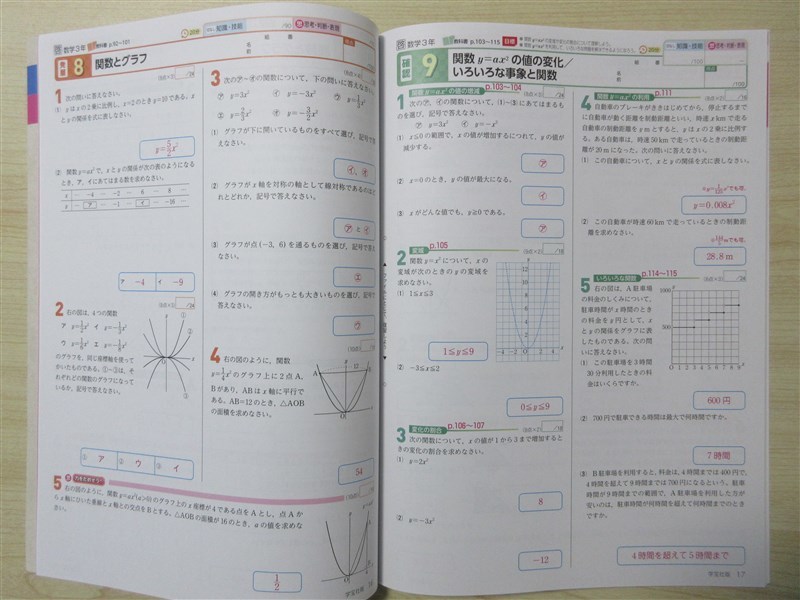 啓 数学3年 教科書 p.92~101
20分
知識・技能 /90
思考・判断・表現
確認 8 関数とグラフ
組
名前
1 次の問いに答えなさい。
(1) y は x の2乗に比例し、x=2のとき y=10である。x
と y の関係を式に表しなさい。
y=5/2x²
(2) 関数 y=ax² で、x と y の関係が次の表のようになる
とき、ア、イにあてはまる数を求めなさい。
x … −4 … −2 … 6 … 8 …
y … ア … −1 … イ … −16 …
ア −4 イ −9
2 右の図は、4つの関数
のグラフを、同じ座標軸を使って
かいたものである。①~③は、そ
れぞれどの関数のグラフになって
いるか、記号で答えなさい。
① ア ② ウ ③ イ
3 次の⑦~㋔の関数について、下の問いに答えなさい。
⑦ y=3x² ㋑ y=−3x²
(1) グラフが下に開いているものをすべて選び、記号で答
えなさい。
㋑、㋔
(2) グラフが x 軸を対称の軸として線対称であるのは、ど
れとどれか、記号で答えなさい。
⑦ と ㋑
(3) グラフが点(−3, 6)を通るものを選び、記号で答えな
さい。
㋓
(4) グラフの開き方がもっとも大きいものを選び、記号で
答えなさい。
㋒
4 右の図のように、関数
y=1/4x² のグラフ上に2点A、
Bがあり、ABは x 軸に平行で
ある。AB=12のとき、△AOB
の面積を求めなさい。
54
5
右の図のように、関数 y=ax²(a>0)のグラフ上の x 座標が4である点をAとし、点Aか
ら x 軸にひいた垂線と x 軸との交点をBとする。△AOBの面積が16のとき、a の値を求めな
さい。
1/2
啓 数学3年 教科書 p.103~115 目標
20分
知識・技能
思考・判断・表現
/100
確認 9 関数 y=ax² の値の変化/
いろいろな事象と関数
組
名前
1 関数 y=ax² の値の増減 p.103~104
次の⑦、㋑の関数について、(1)~(3)にあてはまるも
のを選び、記号で答えなさい。
⑦ y=3x² ㋑ y=−x²
(1) x≤0の範囲で、x の値が増加するにつれて、y の値が
減少する。
⑦
(2) x=0のとき、y の値が最大になる。
㋑
(3) x がどんな値でも、y≥0である。
⑦
2 変域 p.105
関数 y=x² について、x の
変域が次のときの y の変域を
求めなさい。
(1) 1≤x≤3
1≤y≤9
(2) −3≤x≤2
0≤y≤9
3 変化の割合 p.106~107
次の関数について、x の値が1から3まで増加すると
きの変化の割合を求めなさい。
(1) y=2x²
8
(2) y=−3x²
−12
4 関数 y=ax² の利用 p.111
自動車のブレーキがききはじめてから、停止するまで
に自動車が動く距離を制動距離といい、時速 x km で走る
自動車の制動距離を y m とすると、y は x の2乗に比例す
る。ある自動車は、時速50kmで走っているときの制動距
離が20mになった。次の問いに答えなさい。
(1) この自動車について、x と y の関係を式に表しなさい。
y=0.008x²
(2) この自動車が時速60kmで走っているときの制動距
離を求めなさい。
28.8m
5 いろいろな関数 p.114~115
右の図は、A駐車場
の料金のしくみについて、
駐車時間が x 時間のとき
の料金を y 円として、x
と y の関係をグラフに表
したものである。次の問
いに答えなさい。
(1) この駐車場を3時間
30分利用したときの料
金はいくらですか。
600円
(2) 700円で駐車できる時間は最大で何時間ですか。
7時間
(3) B駐車場を利用すると、料金は、4時間までは400円で、
4時間を超えて9時間までは700円になるという。駐車
時間が9時間までの範囲で、A駐車場を利用した方が
安いのは、駐車時間が何時間を超えて何時間までのとき
ですか。
4時間を超えて5時間まで
学宝社版 17